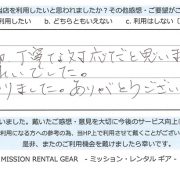 当店を利用したいと思われましたか？その他感想・ご要望がご
用したい b. どちらともいえない c. 利用はしない（
丁寧な対応だと思いま
れいでした。
りました。ありがとうござい
いました。戴いたご感想・意見を大切に今後のサービス向上に
利用になる方への参考の為、当HP上で利用させて戴くことがござい
是非、またのご利用機会を戴けました幸いです。
MISSION RENTAL GEAR - ミッション・レンタル ギア -